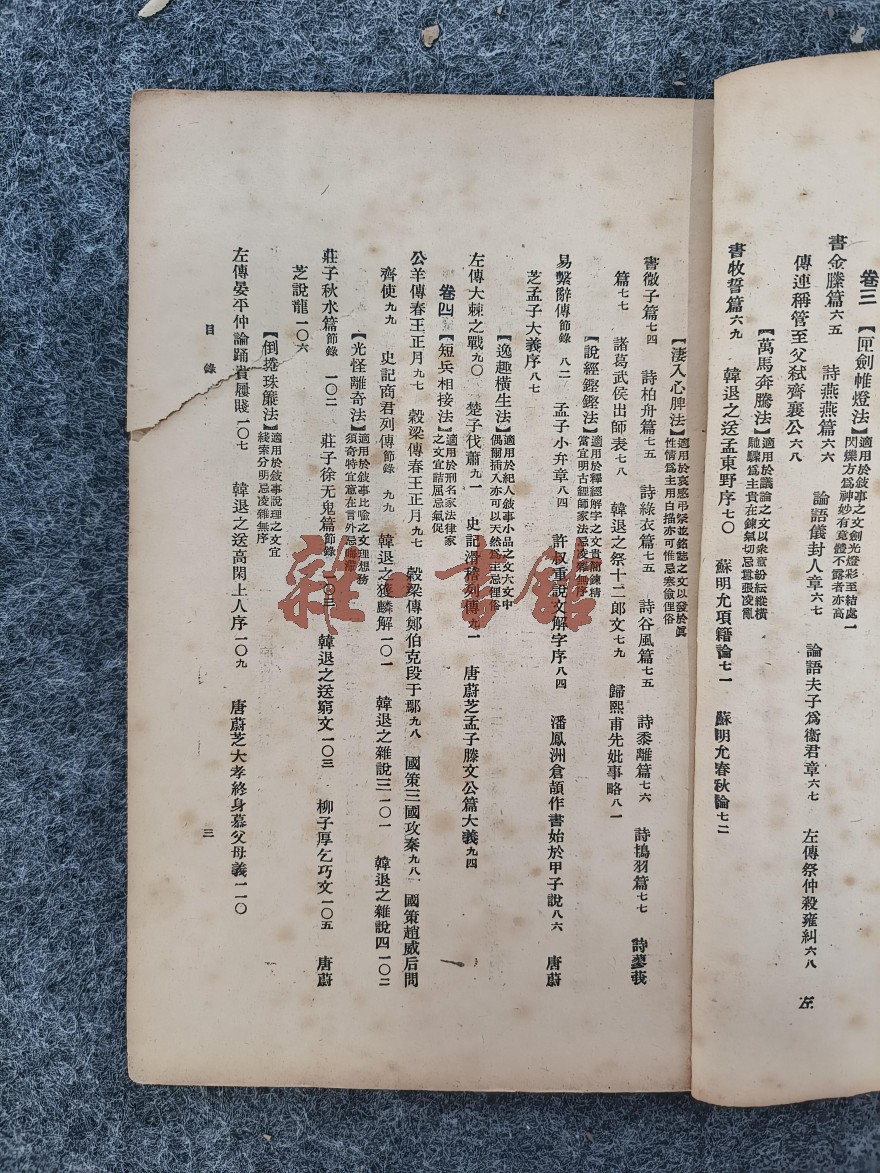 卷三
【匣劍帷燈法】適用於敘事之文劍光燈彩至結處一
閃爍方爲神妙有竟體不露者亦高
書金縢篇六五 詩燕燕篇六六 論語儀封人章六七 論語夫子爲衞君章六七 左傳祭仲殺雍糾六八 左
傳連稱管至父弒齊襄公六八
【萬馬奔騰法】適用於議論之文以衆意紛紜縱橫
馳驟爲主貴在鍊氣切忌囂張凌亂
書牧誓篇六九 韓退之送孟東野序七〇 蘇明允項籍論七一 蘇明允春秋論七二
【淒入心脾法】適用於哀感弔祭並銘誌之文以發於眞
性情爲主用白描亦可惟忌寒儉俚俗
書微子篇七四 詩柏舟篇七五 詩綠衣篇七五 詩谷風篇七五 詩黍離篇七六 詩鴇羽篇七七 詩蓼莪
篇七七 諸葛武侯出師表七八 韓退之祭十二郎文七九 歸熙甫先妣事略八一
【說經鏗鏗法】適用於釋經解字之文貴簡鍊精
當宜明古經師家法忌凌雜無序
易繫辭傳節錄 八二 孟子小弁章八四 許叔重說文解字序八四 潘鳳洲倉頡作書始於甲子說八六 唐蔚
芝孟子大義序八七
【逸趣橫生法】適用於紀人敘事小品之文六文中
偶爾插入亦可以天然爲主忌俚俗
左傳大棘之戰九〇 楚子伐蕭九一 史記滑稽列傳九一 唐蔚芝孟子滕文公篇大義九四
卷四
【短兵相接法】適用於刑名家法律家
之文宜詰屈忌氣促
公羊傳春王正月九七 穀梁傳春王正月九七 穀梁傳鄭伯克段于鄢九八 國策三國攻秦九八 國策趙威后問
齊使九九 史記商君列傳節錄 九九 韓退之獲麟解一〇一 韓退之雜說三一〇一 韓退之雜說四一〇二
【光怪離奇法】適用於敘事比喩之文理想務
須奇特宜意在言外忌
莊子秋水篇節錄 一〇二 莊子徐无鬼篇節錄 一〇三 韓退之送窮文一〇三 柳子厚乞巧文一〇五 唐蔚
芝說龍一〇六
【倒捲珠簾法】適用於敘事說理之文宜
綫索分明忌凌雜無序
左傳晏平仲論踊貴屨賤一〇七 韓退之送高閑上人序一〇九 唐蔚芝大孝終身慕父母義一一〇
目錄
三
雜·書館